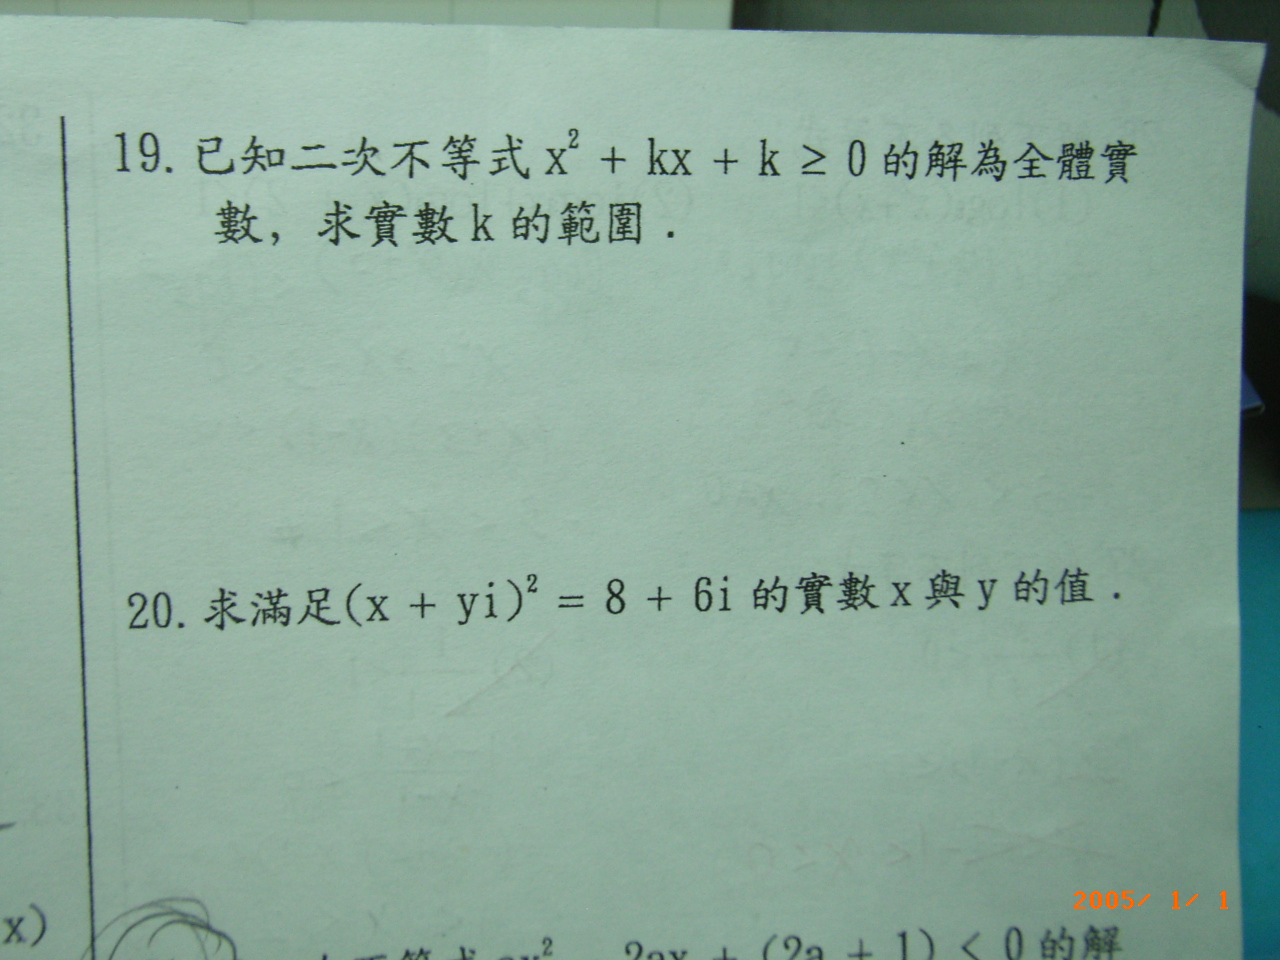 19. 已知二次不等式 x² + kx + k ≥ 0 的解為全體實
數，求實數 k 的範圍．
20. 求滿足(x + yi)² = 8 + 6i 的實數 x 與 y 的值．
x)
不等式 ax² - 2ax + (2a + 1) < 0 的解
2005/ 1/ 1